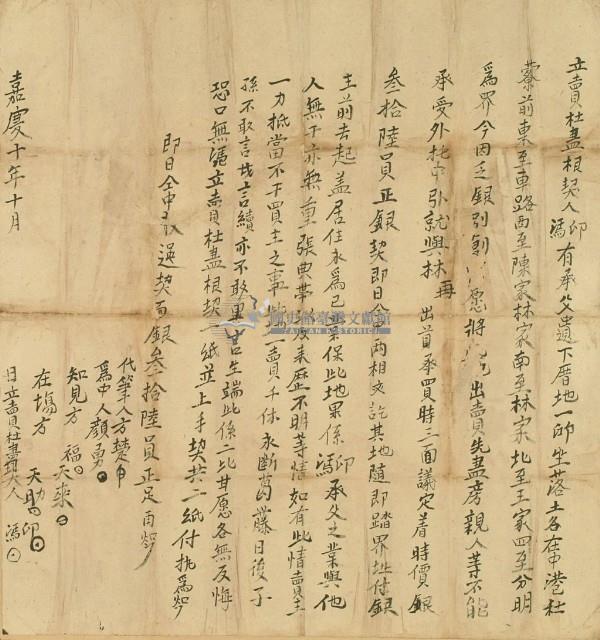 立賣杜盡根契人馮印有承父遺下厝地一所坐落土名在中港杜
藔前東至車路西至陳家林家南至林家北至王家四至分明
為界今因乏銀別創愿將出賣先盡房親人等不能
承受外托中引就與林再出首承買時三面議定着時價銀
叁拾陸員正銀契即日仝中兩相交訖其地隨即踏界址付銀
主前去起盖居住永為己業保此地果係馮印承父之業與他
人無干亦無重張典掛他人及來歷不明等情如有此情賣主
一力抵當不干買主之事此一賣千休永斷葛藤日後子
孫不敢言找言續亦不敢異言生端此係二比甘愿各無反悔
恐口無憑立賣杜盡根契一紙並上手契共二紙付执為炤
即日仝中收過契面銀叁拾陸員正足再炤
代筆人方楚申
為中人顏勇
知見方福
天來
在塲方天賜
印
嘉慶十年十月日立賣杜盡根契人馮
國史館臺灣文獻館
TAIWAN HISTORICA